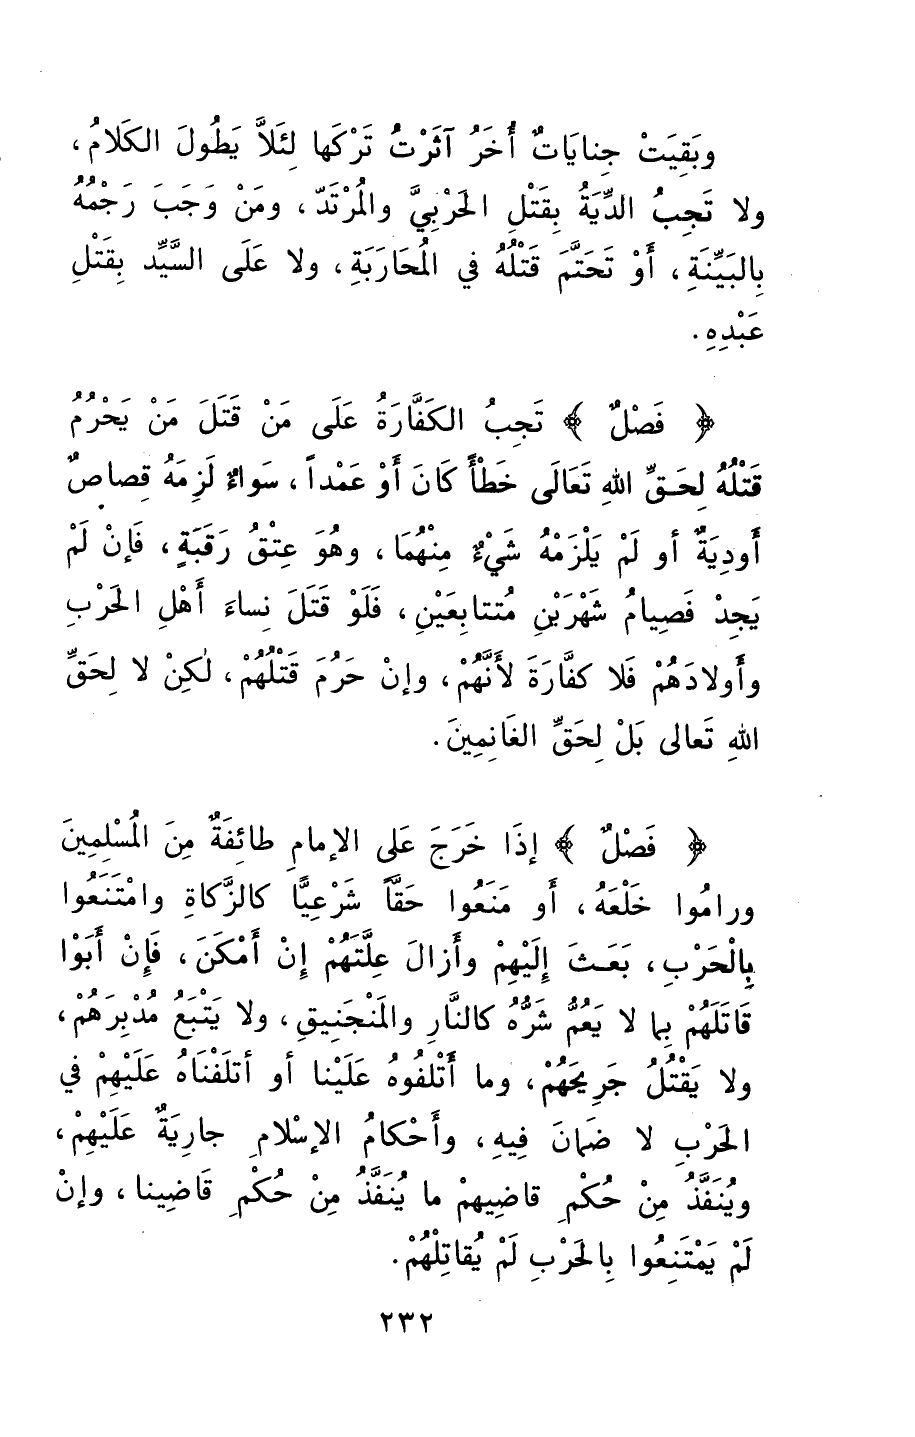 وبَقِيَتْ جِناياتٌ أُخَرُ آثَرْتُ تَرْكَها لِئَلاَّ يَطُولَ الكَلامُ،
ولا تَجِبُ الدِّيَةُ بِقَتْلِ الحَرْبِيِّ والمُرْتَدّ، ومَنْ وَجَبَ رَجْمُهُ
بِالبَيِّنَةِ، أَوْ تَحَتَّمَ قَتْلُهُ في المُحَارَبَةِ، ولا عَلَى السَّيِّد بِقَتْلِ
عَبْدِهِ.
﴿ فَصْلٌ ﴾ تَجِبُ الكَفَّارَةُ عَلَى مَنْ قَتَلَ مَنْ يَحْرُمُ
قَتْلُهُ لِحَقِّ اللهِ تَعَالَى خَطْأً كَانَ أَوْ عَمْداً، سَواءٌ لَزِمَهُ قِصاصٌ
أَودِيَةٌ أو لَمْ يَلْزَمْهُ شَيْءٌ مِنْهُمَا، وهُوَ عِتْقُ رَقَبَةٍ، فَإنْ لَمْ
يَجِدْ فَصِيامُ شَهْرَيْنِ مُتتابِعَيْنِ، فَلَوْ قَتَلَ نِساءَ أَهْلِ الحَرْبِ
وأَولادَهُمْ فَلا كفَّارَةَ لأَنَّهُمْ، وإنْ حَرُمَ قَتْلُهُمْ، لٰكِنْ لا لِحَقِّ
اللهِ تَعالى بَلْ لِحَقِّ الغَانِمِينَ.
﴿ فَصْلٌ ﴾ إذَا خَرَجَ عَلى الإمامِ طائِفَةٌ مِنَ المُسْلِمِينَ
ورامُوا خَلْعَهُ، أَو مَنَعُوا حَقَّاً شَرْعِيًّا كالزَّكاةِ وامْتَنَعُوا
بِالْحَرْبِ، بَعَثَ إلَيْهِمْ وأَزالَ عِلَّتَهُمْ إنْ أَمْكَنَ، فَإِنْ أَبَوْا
قَاتَلَهُمْ بِما لا يَعُمُّ شَرُّهُ كالنَّارِ والمَنْجَنِيقِ، ولا يَتْبَعُ مُدْبِرَهُمْ،
ولا يَقْتُلُ جَرِيحَهُمْ، وما أَتْلفُوهُ عَلَيْنا أو أتلَفْنَاهُ عَلَيْهِمْ في
الحَرْبِ لا ضَمانَ فِيهِ، وأَحْكامُ الإسْلامِ جارِيَةٌ عَلَيْهِمْ،
ويُنَفَّذُ مِنْ حُكْمِ قاضِيهمْ ما يُنَفَّذُ مِنْ حُكْمِ قَاضِينا، وإنْ
لَمْ يَمْتَنِعُوا بِالحَرْبِ لَمْ يُقاتِلْهُمْ.
٢٣٢